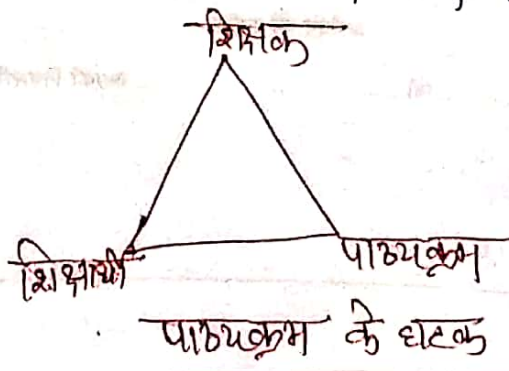 शिक्षक
शिक्षार्थी
पाठ्यक्रम
पाठ्यक्रम के घटक